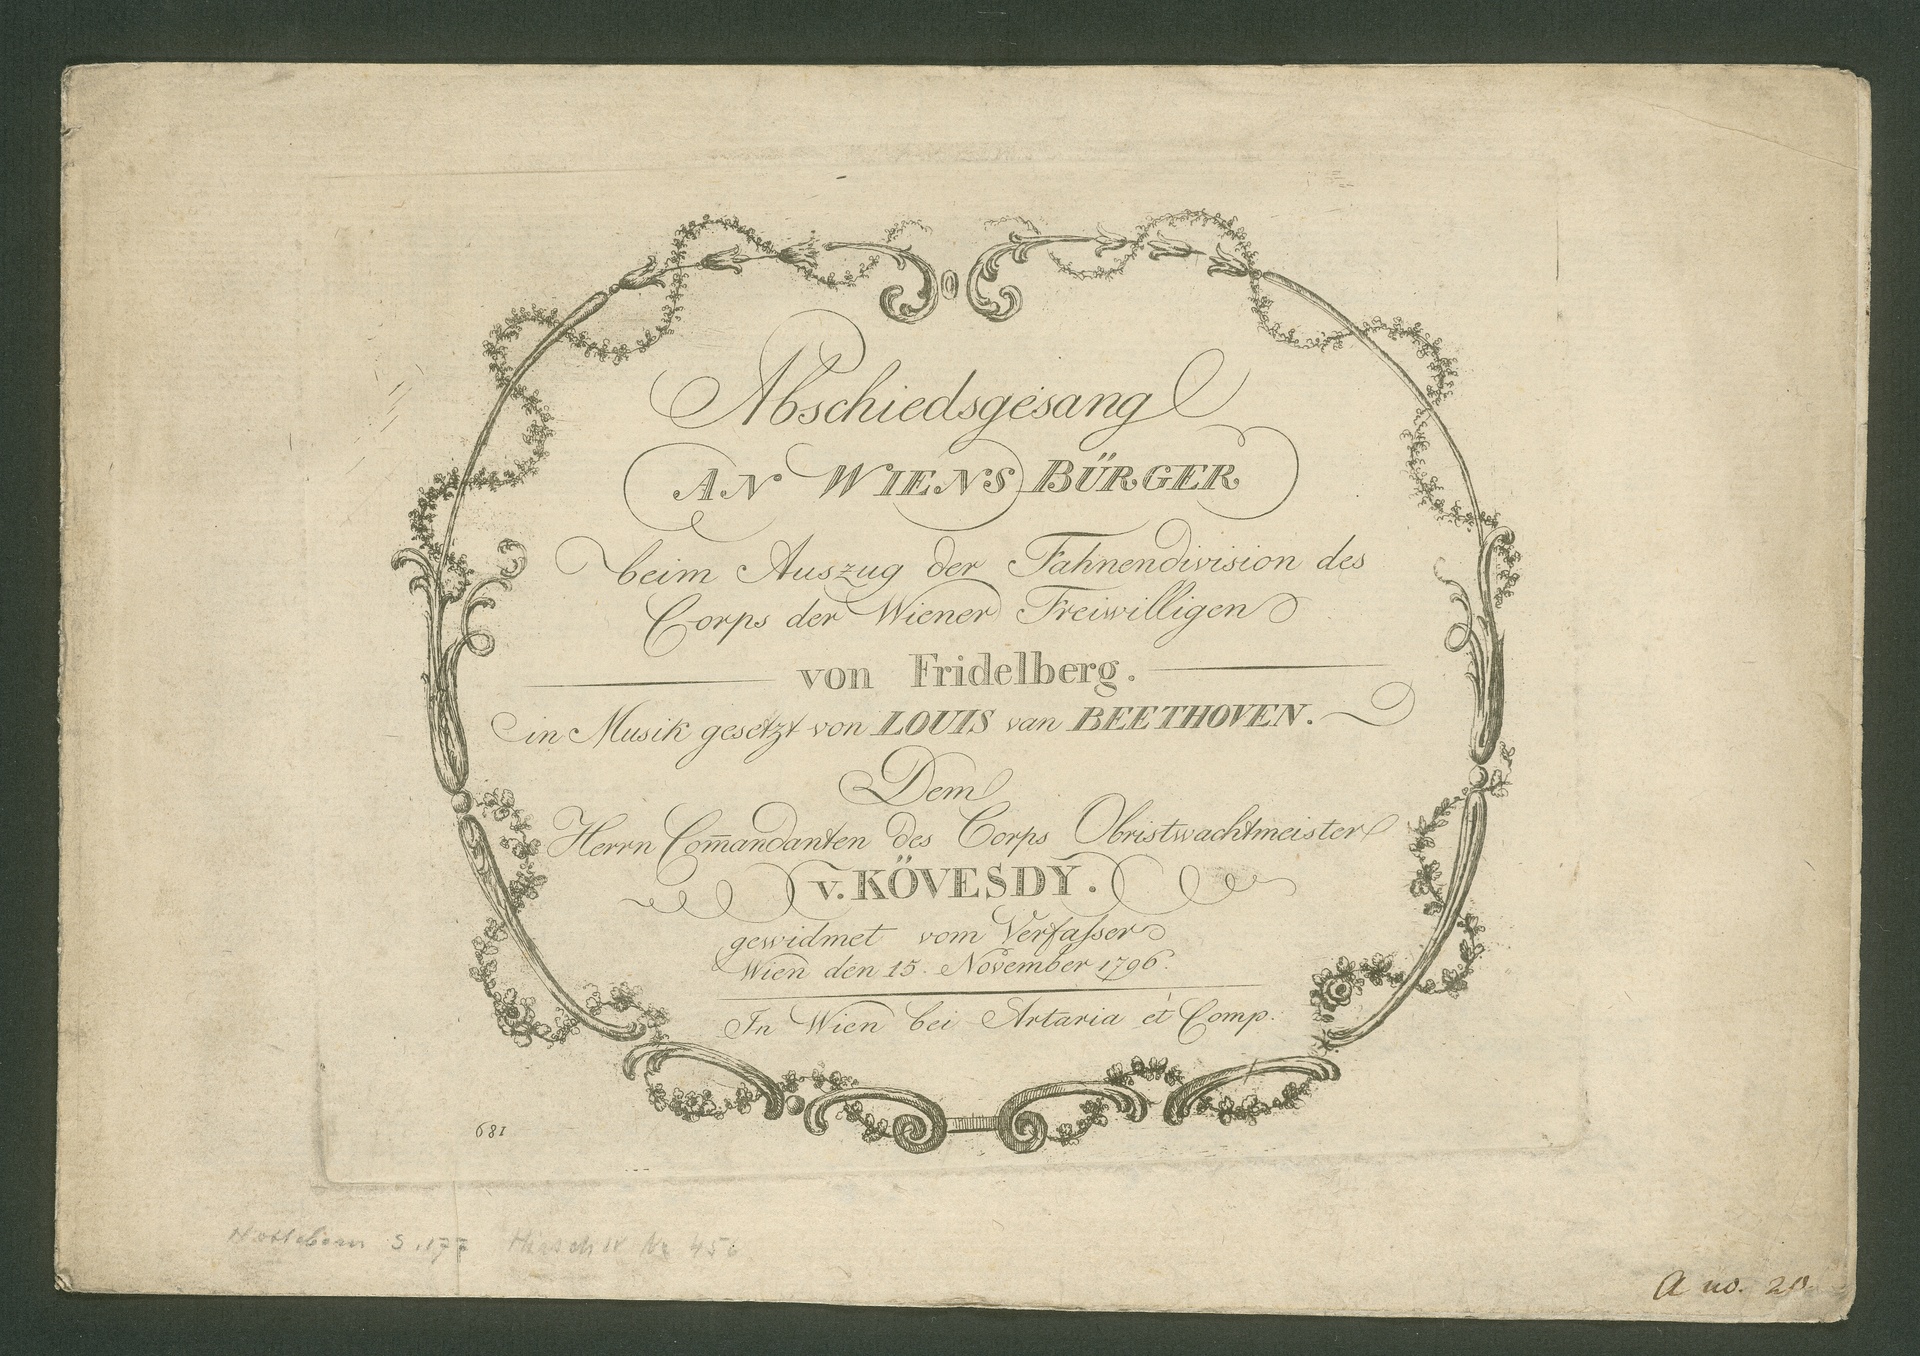 Abschiedsgesang
AN WIENS BÜRGER
beim Auszug der Fahnendivision des
Corps der Wiener Freiwilligen
von Fridelberg.
in Musik gesetzt von LOUIS van BEETHOVEN.
Dem
Herrn Com̄andanten des Corps Obristwachtmeister
v. KÖVESDY.
gewidmet vom Verfaſser
Wien den 15. November 1796.
In Wien bei Artaria et Comp.
681
Nottebohm S. 177 Hirsch IV No
A no.